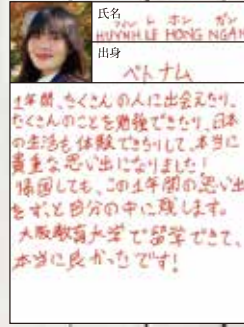 氏名
HUYNH LE HONG NGAN
出身
ベトナム
1年間、たくさんの人に出会えたり、
たくさんのことを勉強できたり、日本
の生活も体験できたりして、本当に
貴重な思い出になりました!
帰国しても、この1年間の思い出
をずっと自分の中に残します。
大阪教育大学で留学できて、
本当に良かったです!